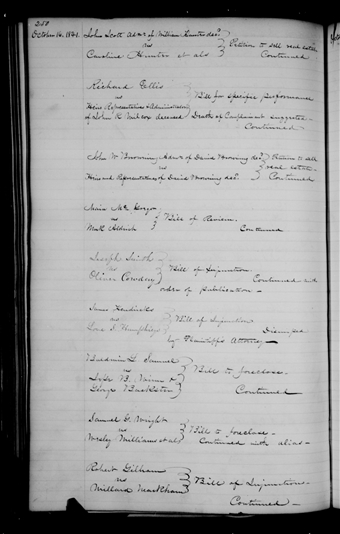 250
October 14, 1841. John Scott Admr of William Hunter decd
vs
Petition to sell real estate
Caroline Hunter et als
Continued
Richard Gillis
vs
Bill for specific performance
Heirs Representatives & Administrators
of John R. Wilcox deceased
Death of Complainant suggested -
Continued
John W. Browning Admr of David Browning decd
Petition to sell
vs
real estate -
Heirs and Representatives of David Browning decd
Continued
vs
Bill of Review.
Continued
Joseph Smith
vs
Bill of Injunction
Oliver Cowdery
Continued and
order of publication -
James Kendricks
vs
Bill of Injunction
Dismissed
by Plaintiffs Attorney -
Samuel
vs
Bill to foreclose.
George
Continued
Samuel G. Wright
vs
Bill to foreclose -
Wesley Williams et als
Continued with alias -
Robert Gilham
vs
Bill of Injunction -
Willard Markham
Continued -